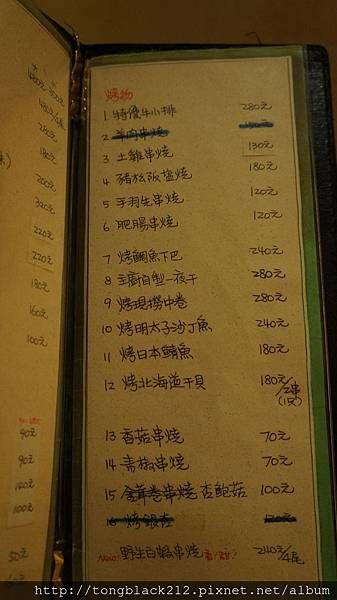 烤物
1 特優牛小排 280元
2 羊肉串燒
3 土雞串燒 130元
4 豬松阪鹽燒 180元
5 手羽先串燒 120元
6 肥腸串燒 120元
7 烤鯛魚下巴 240元
8 主廚自製一夜干 280元
9 烤現撈中卷 280元
10 烤明太子沙丁魚 240元
11 烤日本鯖魚 180元
12 烤北海道干貝 180元/2串
(1只)
13 香菇串燒 70元
14 青椒串燒 70元
15 金茸卷串燒 杏鮑菇 100元
16 烤銀杏 120元
New! 野生白蝦串燒 240元/4尾
180元
200元
320元
220元
220元
180元
160元
100元
90元
90元
100元
50元
http://tongblack212.pixnet.net/album